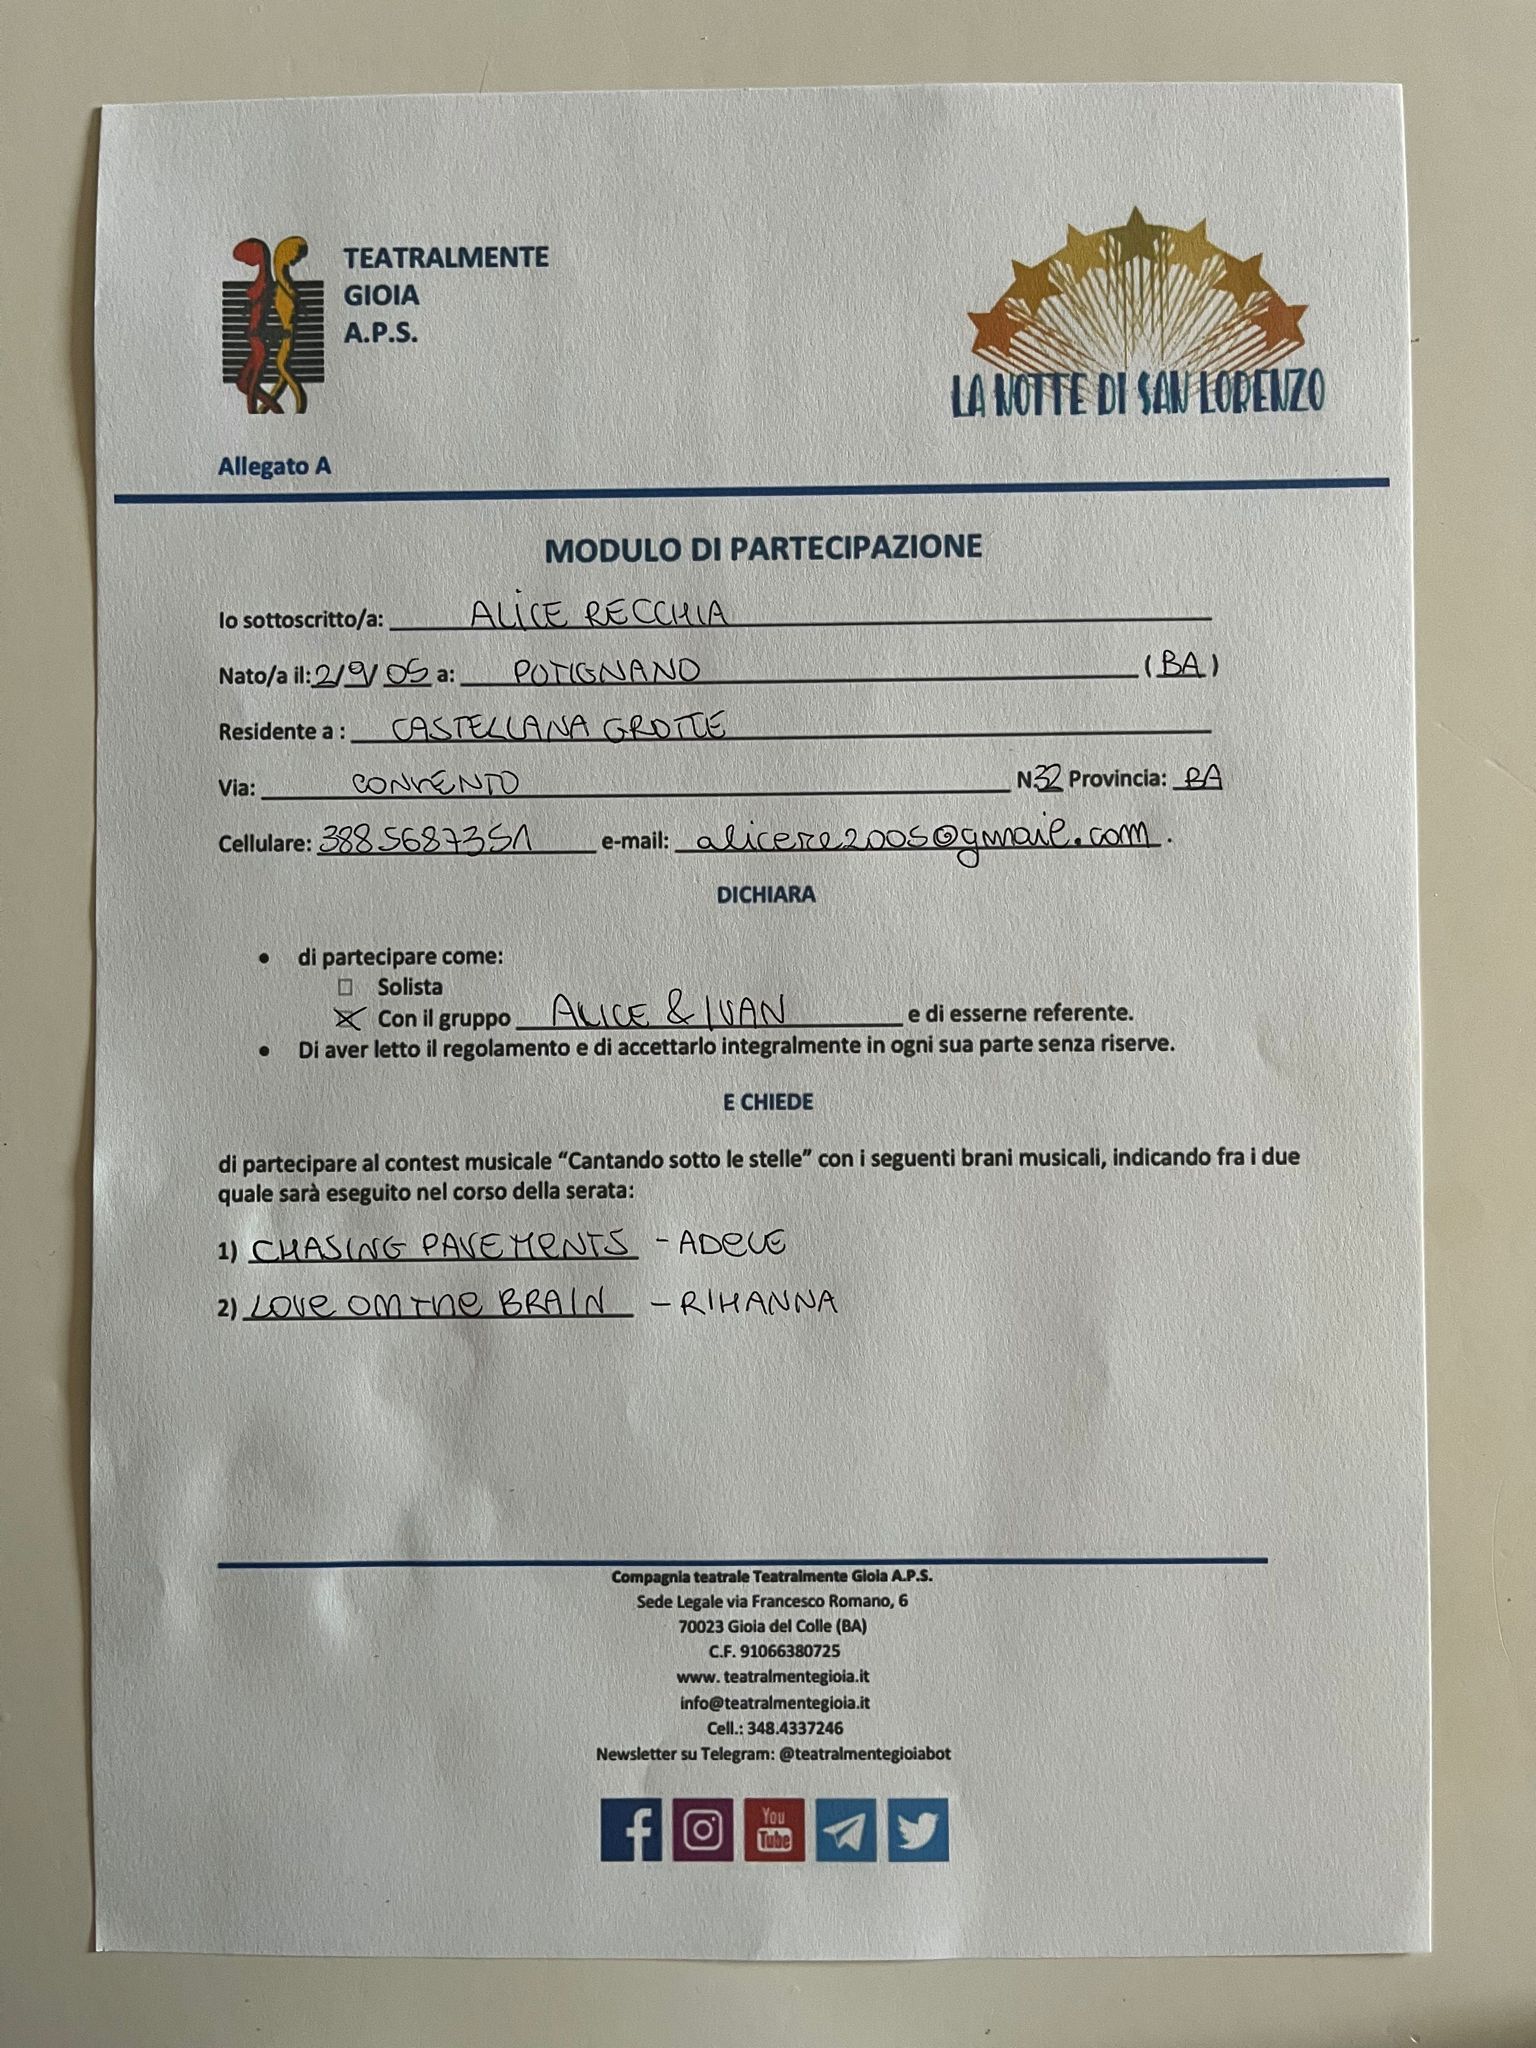 TEATRALMENTE
GIOIA
A.P.S.
LA NOTTE DI SAN LORENZO
Allegato A
MODULO DI PARTECIPAZIONE
Io sottoscritto/a: ALICE RECCHIA
Nato/a il: 2/9/05 a: PUTIGNANO (BA)
Residente a : CASTELLANA GROTTE
Via: CONVENTO N.32 Provincia: BA
Cellulare: 3885687351 e-mail: alicere2005@gmail.com.
DICHIARA
• di partecipare come:
☐ Solista
☒ Con il gruppo ALICE & IVAN e di esserne referente.
• Di aver letto il regolamento e di accettarlo integralmente in ogni sua parte senza riserve.
E CHIEDE
di partecipare al contest musicale “Cantando sotto le stelle” con i seguenti brani musicali, indicando fra i due
quale sarà eseguito nel corso della serata:
1) CHASING PAVEMENTS - ADELE
2) LOVE ON THE BRAIN - RIHANNA
Compagnia teatrale Teatralmente Gioia A.P.S.
Sede Legale via Francesco Romano, 6
70023 Gioia del Colle (BA)
C.F. 91066380725
www. teatralmentegioia.it
info@teatralmentegioia.it
Cell.: 348.4337246
Newsletter su Telegram: @teatralmentegioiabot
You
Tube